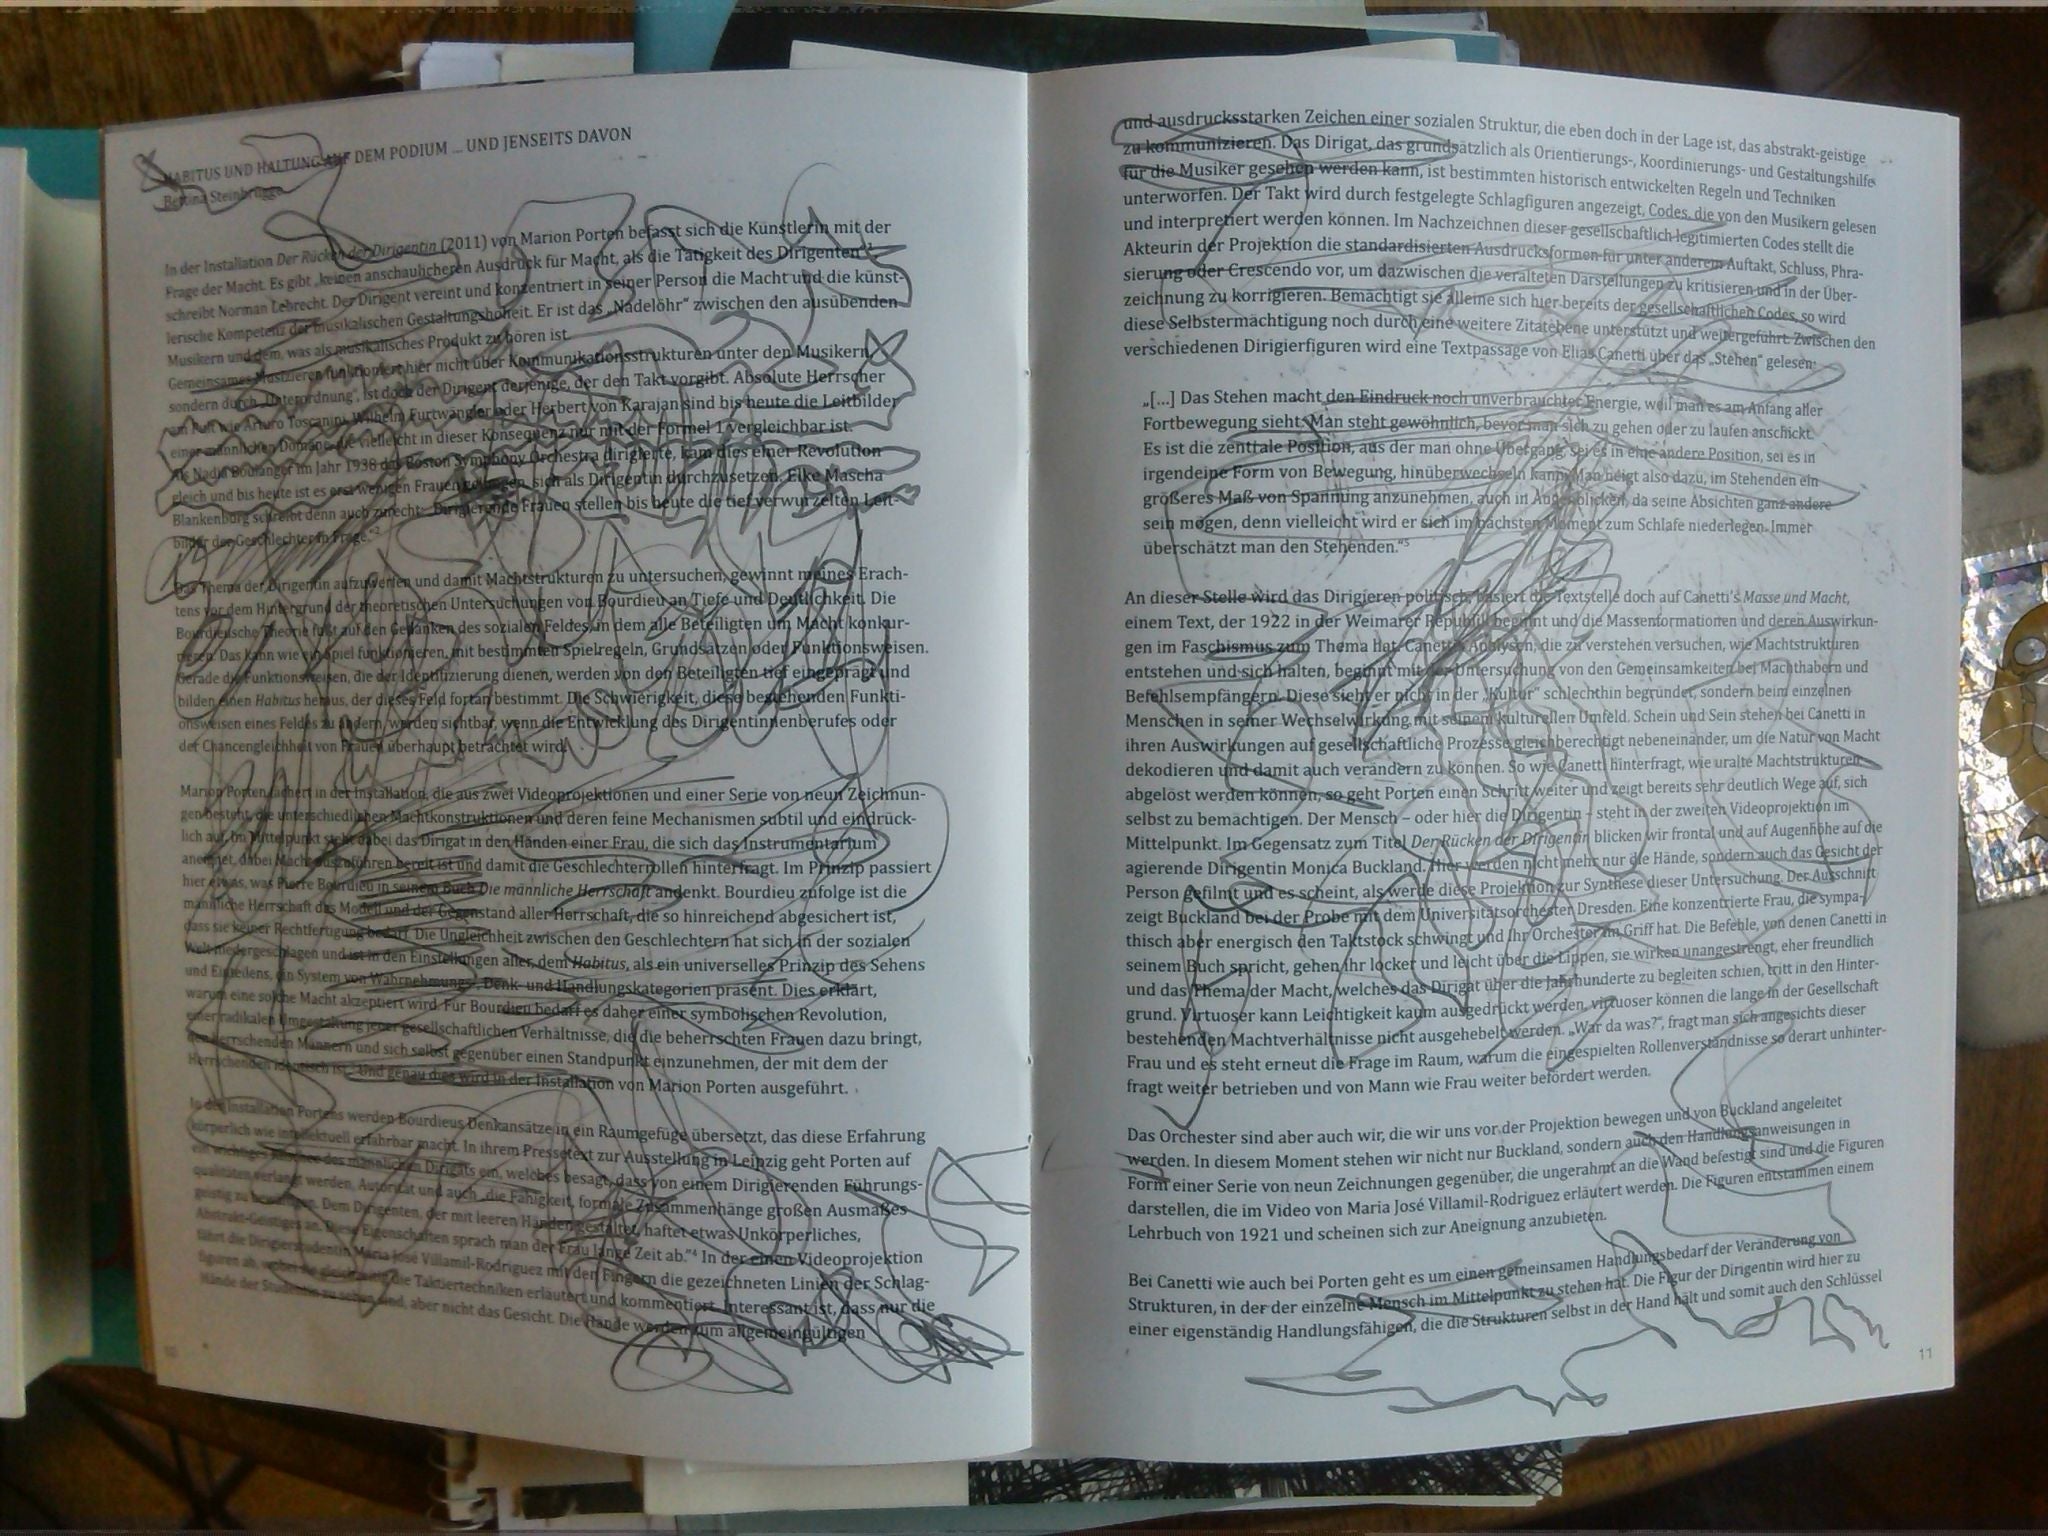 HABITUS UND HALTUNG AUF DEM PODIUM ... UND JENSEITS DAVON
Bettina Steinbrügge
In der Installation Der Rücken der Dirigentin (2011) von Marion Porten befasst sich die Künstlerin mit der
Frage der Macht. Es gibt „keinen anschaulicheren Ausdruck für Macht, als die Tätigkeit des Dirigenten“¹
schreibt Norman Lebrecht. Der Dirigent vereint und konzentriert in seiner Person die Macht und die künst-
lerische Kompetenz der musikalischen Gestaltungshoheit. Er ist das „Nadelöhr“ zwischen den ausübenden
Musikern und dem, was als musikalisches Produkt zu hören ist.
Gemeinsames Musizieren funktioniert hier nicht über Kommunikationsstrukturen unter den Musikern,
sondern durch „Unterordnung“, ist doch der Dirigent derjenige, der den Takt vorgibt. Absolute Herrscher
am Pult wie Arturo Toscanini, Wilhelm Furtwängler oder Herbert von Karajan sind bis heute die Leitbilder
einer männlichen Domäne, die vielleicht in dieser Konsequenz nur mit der Formel 1 vergleichbar ist.
Als Nadia Boulanger im Jahr 1938 das Boston Symphony Orchestra dirigierte, kam dies einer Revolution
gleich und bis heute ist es erst wenigen Frauen gelungen, sich als Dirigentin durchzusetzen. Elke Mascha
Blankenburg schreibt denn auch zurecht: „Dirigierende Frauen stellen bis heute die tief verwurzelten Leit-
bilder der Geschlechter in Frage.“²
Das Thema der Dirigentin aufzuwerfen und damit Machtstrukturen zu untersuchen, gewinnt meines Erach-
tens vor dem Hintergrund der theoretischen Untersuchungen von Bourdieu an Tiefe und Deutlichkeit. Die
Bourdieusche Theorie fußt auf den Gedanken des sozialen Feldes, in dem alle Beteiligten um Macht konkur-
rieren. Das kann wie ein Spiel funktionieren, mit bestimmten Spielregeln, Grundsätzen oder Funktionsweisen.
Gerade die Funktionsweisen, die der Identifizierung dienen, werden von den Beteiligten tief eingeprägt und
bilden einen Habitus heraus, der dieses Feld fortan bestimmt. Die Schwierigkeit, diese bestehenden Funkti-
onsweisen eines Feldes zu ändern, werden sichtbar, wenn die Entwicklung des Dirigentinnenberufes oder
der Chancengleichheit von Frauen überhaupt betrachtet wird.
Marion Porten fächert in der Installation, die aus zwei Videoprojektionen und einer Serie von neun Zeichnun-
gen besteht, die unterschiedlichen Machtkonstruktionen und deren feine Mechanismen subtil und eindrück-
lich auf. Im Mittelpunkt steht dabei das Dirigat in den Händen einer Frau, die sich das Instrumentarium
aneignet, dabei Macht auszuführen bereit ist und damit die Geschlechterrollen hinterfragt. Im Prinzip passiert
hier etwas, was Pierre Bourdieu in seinem Buch Die männliche Herrschaft andenkt. Bourdieu zufolge ist die
männliche Herrschaft das Modell und der Gegenstand aller Herrschaft, die so hinreichend abgesichert ist,
dass sie keiner Rechtfertigung bedarf. Die Ungleichheit zwischen den Geschlechtern hat sich in der sozialen
Welt niedergeschlagen und ist in den Einstellungen aller, dem Habitus, als ein universelles Prinzip des Sehens
und Einteilens, ein System von Wahrnehmungs-, Denk- und Handlungskategorien präsent. Dies erklärt,
warum eine solche Macht akzeptiert wird. Für Bourdieu bedarf es daher einer symbolischen Revolution,
einer radikalen Umgestaltung jener gesellschaftlichen Verhältnisse, die die beherrschten Frauen dazu bringt,
den herrschenden Männern und sich selbst gegenüber einen Standpunkt einzunehmen, der mit dem der
Herrschenden identisch ist.³ Und genau dies wird in der Installation von Marion Porten ausgeführt.
In der Installation Portens werden Bourdieus Denkansätze in ein Raumgefüge übersetzt, das diese Erfahrung
körperlich wie intellektuell erfahrbar macht. In ihrem Pressetext zur Ausstellung in Leipzig geht Porten auf
ein wichtiges Klischee des männlichen Dirigats ein, welches besagt, dass von einem Dirigierenden Führungs-
qualitäten verlangt werden, Autorität und auch „die Fähigkeit, formale Zusammenhänge großen Ausmaßes
geistig zu bewältigen. Dem Dirigenten, der mit leeren Händen gestaltet, haftet etwas Unkörperliches,
Abstrakt-Geistiges an. Diese Eigenschaften sprach man der Frau lange Zeit ab.“⁴ In der einen Videoprojektion
fährt die Dirigierstudentin Maria José Villamil-Rodriguez mit den Fingern die gezeichneten Linien der Schlag-
figuren ab, wobei sie gleichzeitig die Taktiertechniken erläutert und kommentiert. Interessant ist, dass nur die
Hände der Studentin zu sehen sind, aber nicht das Gesicht. Die Hände werden zum allgemeingültigen
10
und ausdrucksstarken Zeichen einer sozialen Struktur, die eben doch in der Lage ist, das abstrakt-geistige
zu kommunizieren. Das Dirigat, das grundsätzlich als Orientierungs-, Koordinierungs- und Gestaltungshilfe
für die Musiker gesehen werden kann, ist bestimmten historisch entwickelten Regeln und Techniken
unterworfen. Der Takt wird durch festgelegte Schlagfiguren angezeigt, Codes, die von den Musikern gelesen
und interpretiert werden können. Im Nachzeichnen dieser gesellschaftlich legitimierten Codes stellt die
Akteurin der Projektion die standardisierten Ausdrucksformen für unter anderem Auftakt, Schluss, Phra-
sierung oder Crescendo vor, um dazwischen die veralteten Darstellungen zu kritisieren und in der Über-
zeichnung zu korrigieren. Bemächtigt sie alleine sich hier bereits der gesellschaftlichen Codes, so wird
diese Selbstermächtigung noch durch eine weitere Zitatebene unterstützt und weitergeführt. Zwischen den
verschiedenen Dirigierfiguren wird eine Textpassage von Elias Canetti über das „Stehen“ gelesen:
„[...] Das Stehen macht den Eindruck noch unverbrauchter Energie, weil man es am Anfang aller
Fortbewegung sieht. Man steht gewöhnlich, bevor man sich zu gehen oder zu laufen anschickt.
Es ist die zentrale Position, aus der man ohne Übergang, sei es in eine andere Position, sei es in
irgendeine Form von Bewegung, hinüberwechseln kann. Man neigt also dazu, im Stehenden ein
größeres Maß von Spannung anzunehmen, auch in Augenblicken, da seine Absichten ganz andere
sein mögen, denn vielleicht wird er sich im nächsten Moment zum Schlafe niederlegen. Immer
überschätzt man den Stehenden.“⁵
An dieser Stelle wird das Dirigieren politisch, basiert die Textstelle doch auf Canetti's Masse und Macht,
einem Text, der 1922 in der Weimarer Republik beginnt und die Massenformationen und deren Auswirkun-
gen im Faschismus zum Thema hat. Canettis Analysen, die zu verstehen versuchen, wie Machtstrukturen
entstehen und sich halten, beginnt mit der Untersuchung von den Gemeinsamkeiten bei Machthabern und
Befehlsempfängern. Diese sieht er nicht in der „Kultur“ schlechthin begründet, sondern beim einzelnen
Menschen in seiner Wechselwirkung mit seinem kulturellen Umfeld. Schein und Sein stehen bei Canetti in
ihren Auswirkungen auf gesellschaftliche Prozesse gleichberechtigt nebeneinander, um die Natur von Macht
dekodieren und damit auch verändern zu können. So wie Canetti hinterfragt, wie uralte Machtstrukturen
abgelöst werden können, so geht Porten einen Schritt weiter und zeigt bereits sehr deutlich Wege auf, sich
selbst zu bemächtigen. Der Mensch – oder hier die Dirigentin – steht in der zweiten Videoprojektion im
Mittelpunkt. Im Gegensatz zum Titel Der Rücken der Dirigentin blicken wir frontal und auf Augenhöhe auf die
agierende Dirigentin Monica Buckland. Hier werden nicht mehr nur die Hände, sondern auch das Gesicht der
Person gefilmt und es scheint, als werde diese Projektion zur Synthese dieser Untersuchung. Der Ausschnitt
zeigt Buckland bei der Probe mit dem Universitätsorchester Dresden. Eine konzentrierte Frau, die sympa-
thisch aber energisch den Taktstock schwingt und ihr Orchester im Griff hat. Die Befehle, von denen Canetti in
seinem Buch spricht, gehen ihr locker und leicht über die Lippen, sie wirken unangestrengt, eher freundlich
und das Thema der Macht, welches das Dirigat über die Jahrhunderte zu begleiten schien, tritt in den Hinter-
grund. Virtuoser kann Leichtigkeit kaum ausgedrückt werden, virtuoser können die lange in der Gesellschaft
bestehenden Machtverhältnisse nicht ausgehebelt werden. „War da was?“, fragt man sich angesichts dieser
Frau und es steht erneut die Frage im Raum, warum die eingespielten Rollenverständnisse so derart unhinter-
fragt weiter betrieben und von Mann wie Frau weiter befördert werden.
Das Orchester sind aber auch wir, die wir uns vor der Projektion bewegen und von Buckland angeleitet
werden. In diesem Moment stehen wir nicht nur Buckland, sondern auch den Handlungsanweisungen in
Form einer Serie von neun Zeichnungen gegenüber, die ungerahmt an die Wand befestigt sind und die Figuren
darstellen, die im Video von Maria José Villamil-Rodriguez erläutert werden. Die Figuren entstammen einem
Lehrbuch von 1921 und scheinen sich zur Aneignung anzubieten.
Bei Canetti wie auch bei Porten geht es um einen gemeinsamen Handlungsbedarf der Veränderung von
Strukturen, in der der einzelne Mensch im Mittelpunkt zu stehen hat. Die Figur der Dirigentin wird hier zu
einer eigenständig Handlungsfähigen, die die Strukturen selbst in der Hand hält und somit auch den Schlüssel
11